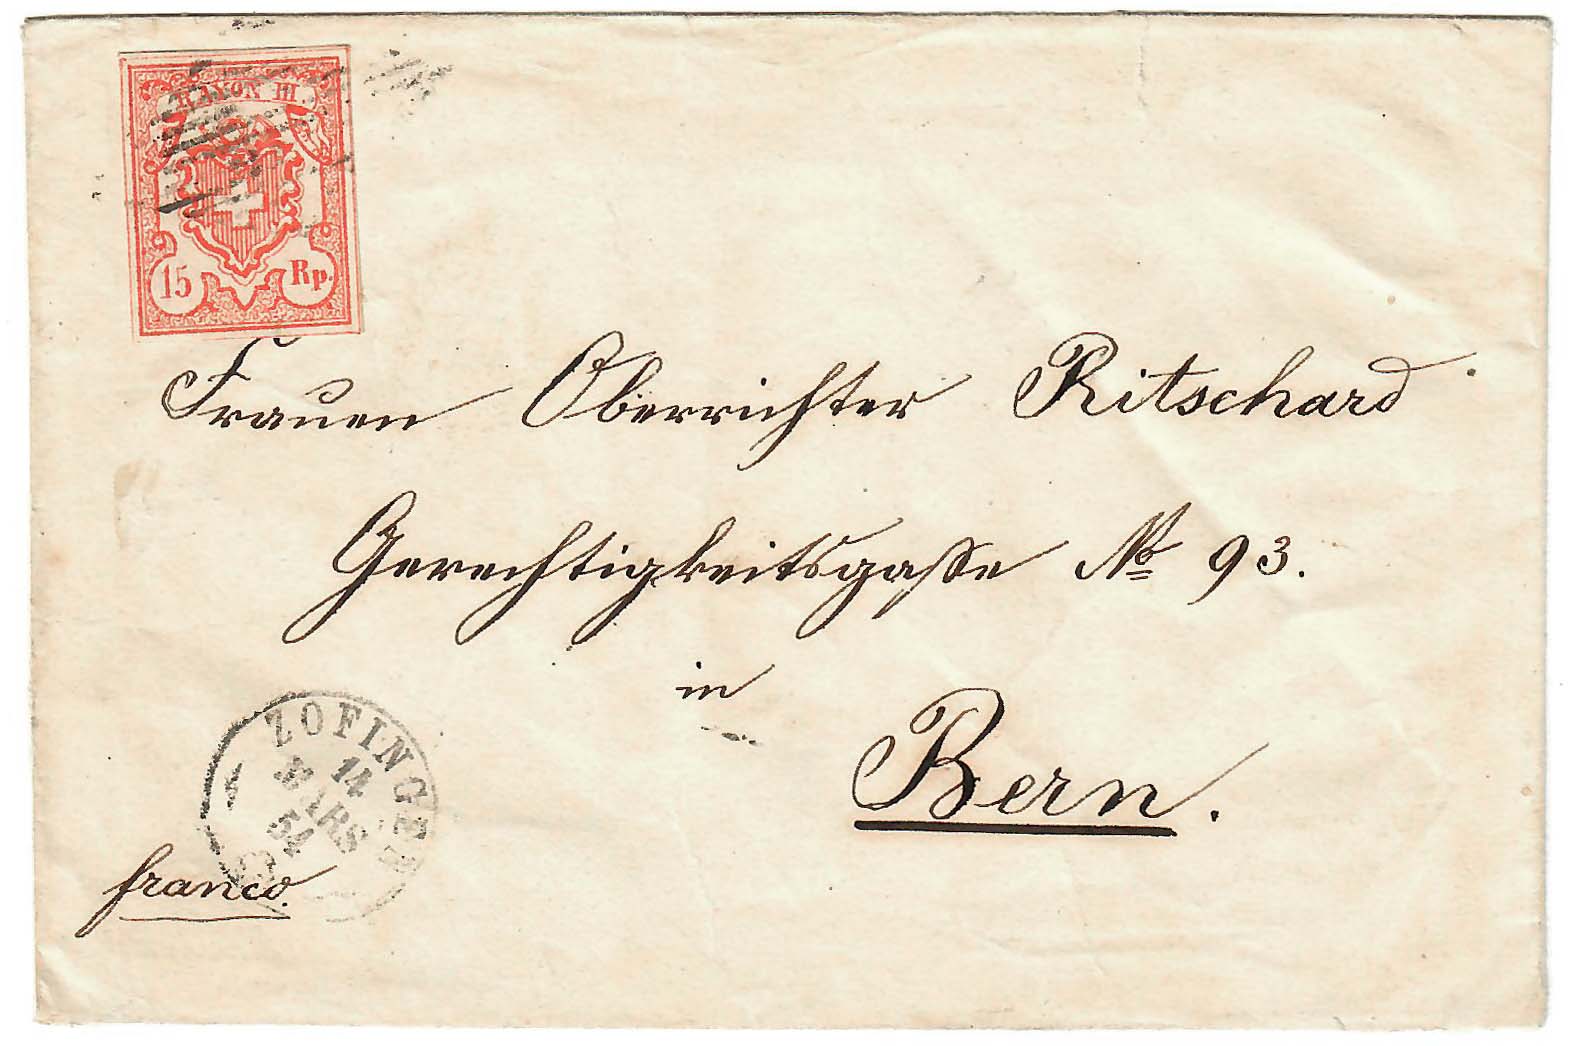 RAYON III.
15 Rp.
Frauen Oberrichter Ritschard
Gerechtigkeitsgasse No 93.
in
Bern.
ZOFINGEN
14
MARS
54
franco.